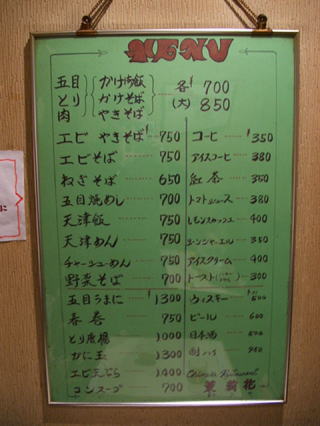 MENU
五目 かけ御飯 各¥ 700
とり かけそば (大) 850
肉 やきそば
エビ やきそば ¥750
エビそば 750
ねぎそば 650
五目焼めし 700
天津飯 750
天津めん 750
チャーシューめん 750
野菜そば 700
五目うまに ¥1300
春巻 750
とり唐揚 1000
かに玉 1300
エビ天ぷら
コンスープ 700
コーヒ ¥350
アイスコーヒ 380
紅茶 350
トマトジュース 380
レモンスカッシュ 400
ジンジャーエール 350
アイスクリーム 400
トースト 300
ウィスキー
ビール 600
日本酒
酎ハイ
Chinese Restaurant